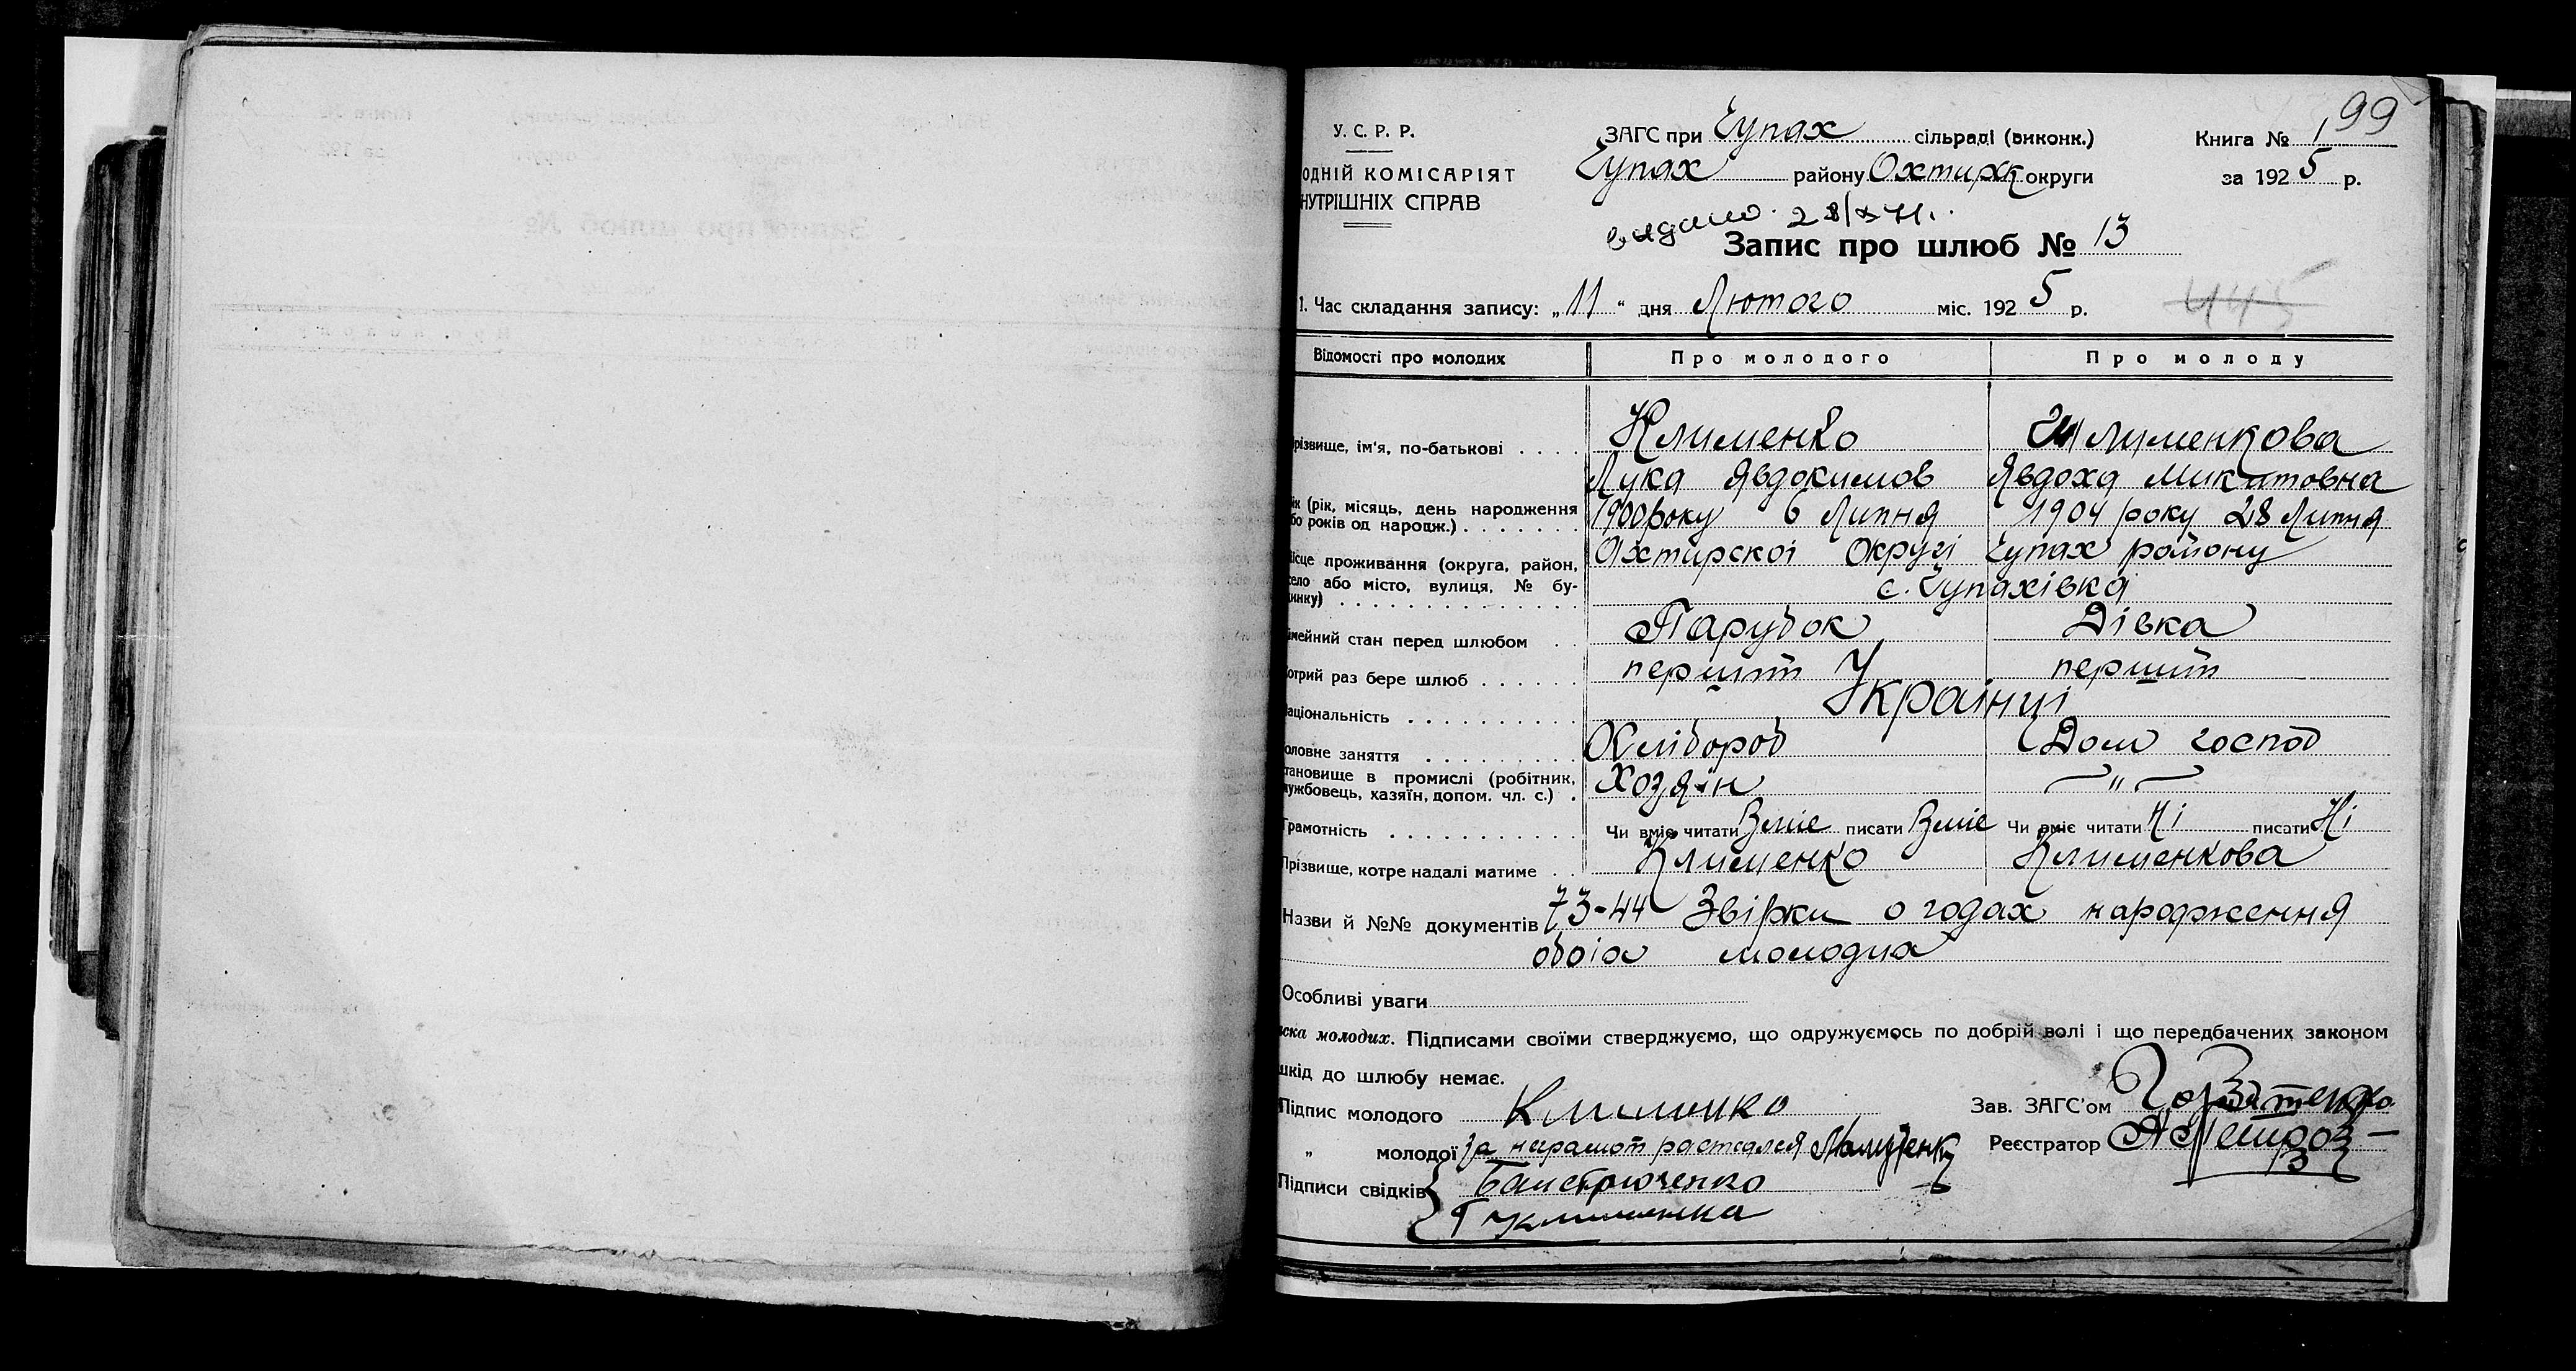 99
У. С. Р. Р.
ОДНІЙ КОМІСАРІЯТ
НУТРІШНІХ СПРАВ
ЗАГС при Чупах сільраді (виконк.)
Чупах району Охтирк округи
Книга № 1
за 1925 р.
видано 28/
Запис про шлюб № 13
1. Час складання запису: „11“ дня Лютого міс. 1925 р.
445
Відомості про молодих Про молодого Про молоду
різвище, ім'я, по-батькові . . . . Клименко Клименкова
Лука Явдокимов Явдоха Микитовна
ік (рік, місяць, день народження
бо років од народж.) . . . . . . . 1900 року 6 Липня 1904 року 28 Липня
ісце проживання (округа, район, Охтирскоі Округі Чупах району
село або місто, вулиця, № бу-
инку) . . . . . . . . . . . . . . с. Чупахівка
імейний стан перед шлюбом . . Парубок Дівка
отрий раз бере шлюб . . . . . . перший перший
аціональність . . . . . . . . . . . Українці
оловне заняття . . . . . . . . . . Хлібороб Дом господ
тановище в промислі (робітник,
ужбовець, хазяїн, допом. чл. с.) . Хозяін — " —
Грамотність . . . . . . . . . . . . Чи вміє читати Вміе писати Вміе Чи вміє читати Ні писати Ні
Прізвище, котре надалі матиме . . Клименко Клименкова
Назви й №№ документів 73-44 Звірки о годах народження
обоіх
Особливі уваги
иска молодих. Підписами своїми стверджуємо, що одружуємось по добрій волі і що передбачених законом
шкід до шлюбу немає.
Підпис молодого Клименко
Зав. ЗАГС'ом
„ молодої за неграмот
Реєстратор
Підписи свідків
Клименка